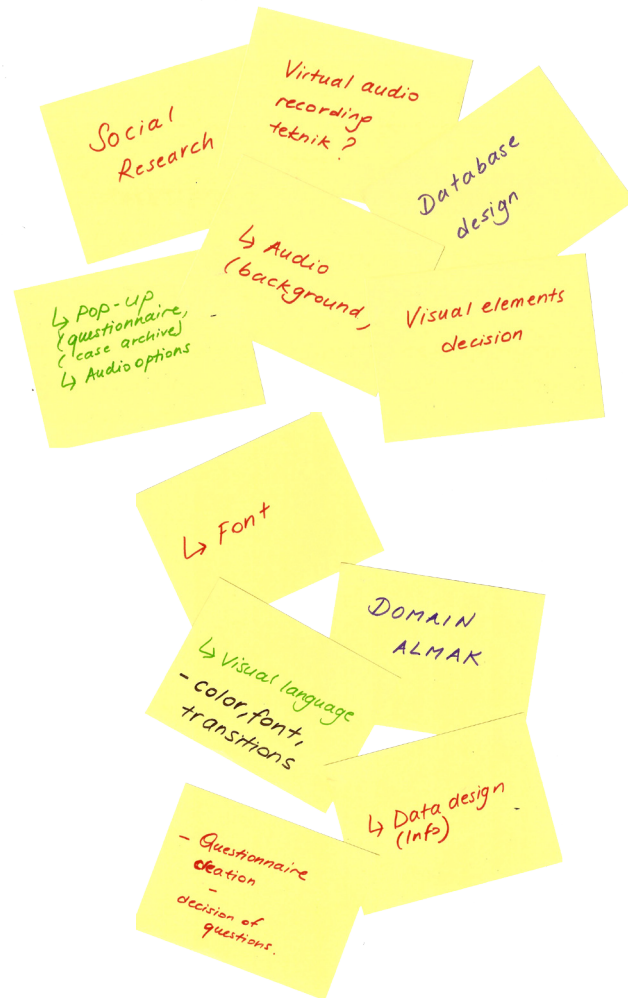 Social
Research
Virtual audio
recording
teknik?
Database
design
↳ Audio
(background,
↳ Pop-up
(questionnaire,
(case archive)
↳ Audio options
Visual elements
decision
↳ Font
DOMAIN
ALMAK
↳ Visual language
- color, font,
transitions
↳ Data design
(Info)
- Questionnaire
creation
-
decision of
questions.